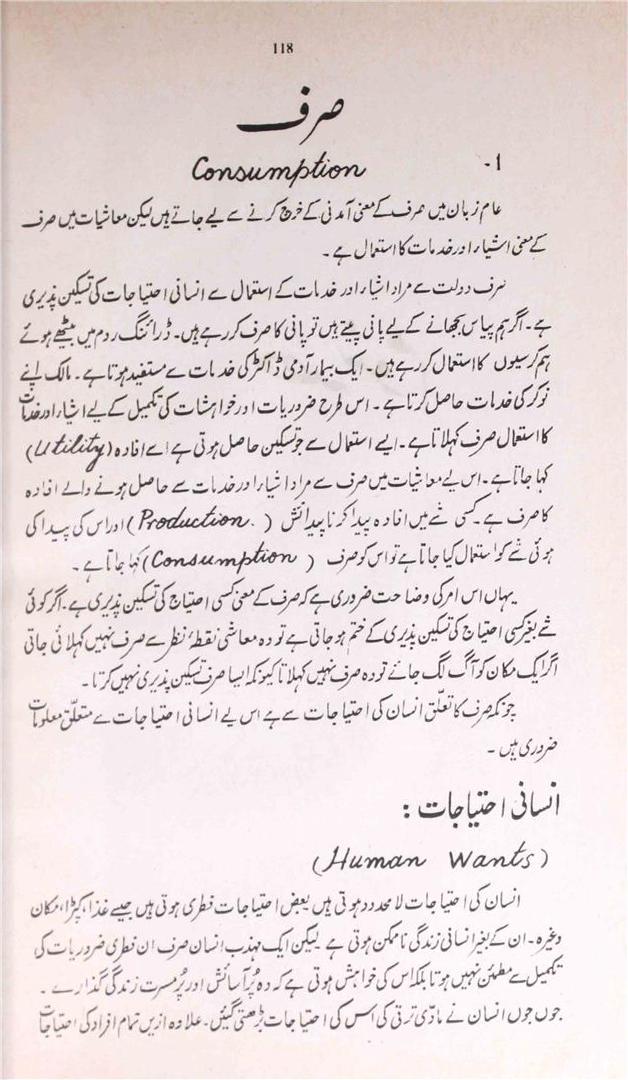 118
صرف
1-
Consumption
عام زبان میں صرف کے معنی آمدنی کے خرچ کرنے سے لیے جاتے ہیں لیکن معاشیات میں صرف
کے معنی اشیاء اور خدمات کا استعمال ہے ۔
صرف دولت سے مراد اشیاء اور خدمات کے استعمال سے انسانی احتیاجات کی تسکین پذیری
ہے۔ اگر ہم پیاس بجھانے کے لیے پانی پیتے ہیں تو پانی کا صرف کر رہے ہیں۔ ڈرائنگ روم میں بیٹھے ہوئے
ہم کرسیوں کا استعمال کر رہے ہیں۔ ایک بیمار آدمی ڈاکٹر کی خدمات سے مستفید ہوتا ہے۔ مالک اپنے
نوکر کی خدمات حاصل کرتا ہے ۔ اس طرح ضروریات اور خواہشات کی تکمیل کے لیے اشیاء اور خدمات
کا استعمال صرف کہلاتا ہے۔ ایسے استعمال سے جو تسکین حاصل ہوتی ہے اسے افادہ (Utility)
کہا جاتا ہے۔ اس لیے معاشیات میں صرف سے مراد اشیاء اور خدمات سے حاصل ہونے والے افادہ
کا صرف ہے۔ کسی شے میں افادہ پیدا کرنا پیدائش (Production) اور اس کی پیدا کی
ہوئی شے کو استعمال کیا جاتا ہے تو اس کو صرف (Consumption) کہا جاتا ہے ۔
یہاں اس امر کی وضاحت ضروری ہے کہ صرف کے معنی کسی احتیاج کی تسکین پذیری ہے۔ اگر کوئی
شے بغیر کسی احتیاج کی تسکین پذیری کے ختم ہو جاتی ہے تو وہ معاشی نقطۂ نظر سے صرف نہیں کہلائی جاتی
اگر ایک مکان کو آگ لگ جائے تو وہ صرف نہیں کہلاتا کیونکہ ایسا صرف تسکین پذیری نہیں کرتا۔
چونکہ صرف کا تعلق انسان کی احتیاجات سے ہے اس لیے انسانی احتیاجات سے متعلق معلومات
ضروری ہیں ۔
انسانی احتیاجات :
(Human Wants)
انسان کی احتیاجات لامحدود ہوتی ہیں بعض احتیاجات فطری ہوتی ہیں جیسے غذا، کپڑا، مکان
وغیرہ۔ ان کے بغیر انسانی زندگی ناممکن ہوتی ہے لیکن ایک مہذب انسان صرف ان فطری ضروریات کی
تکمیل سے مطمئن نہیں ہوتا بلکہ اس کی خواہش ہوتی ہے کہ وہ پُر آسائش اور پُر مسرت زندگی گذارے ۔
جوں جوں انسان نے مادّی ترقی کی اس کی احتیاجات بڑھتی گئیں۔ علاوہ ازیں تمام افراد کی احتیاجات